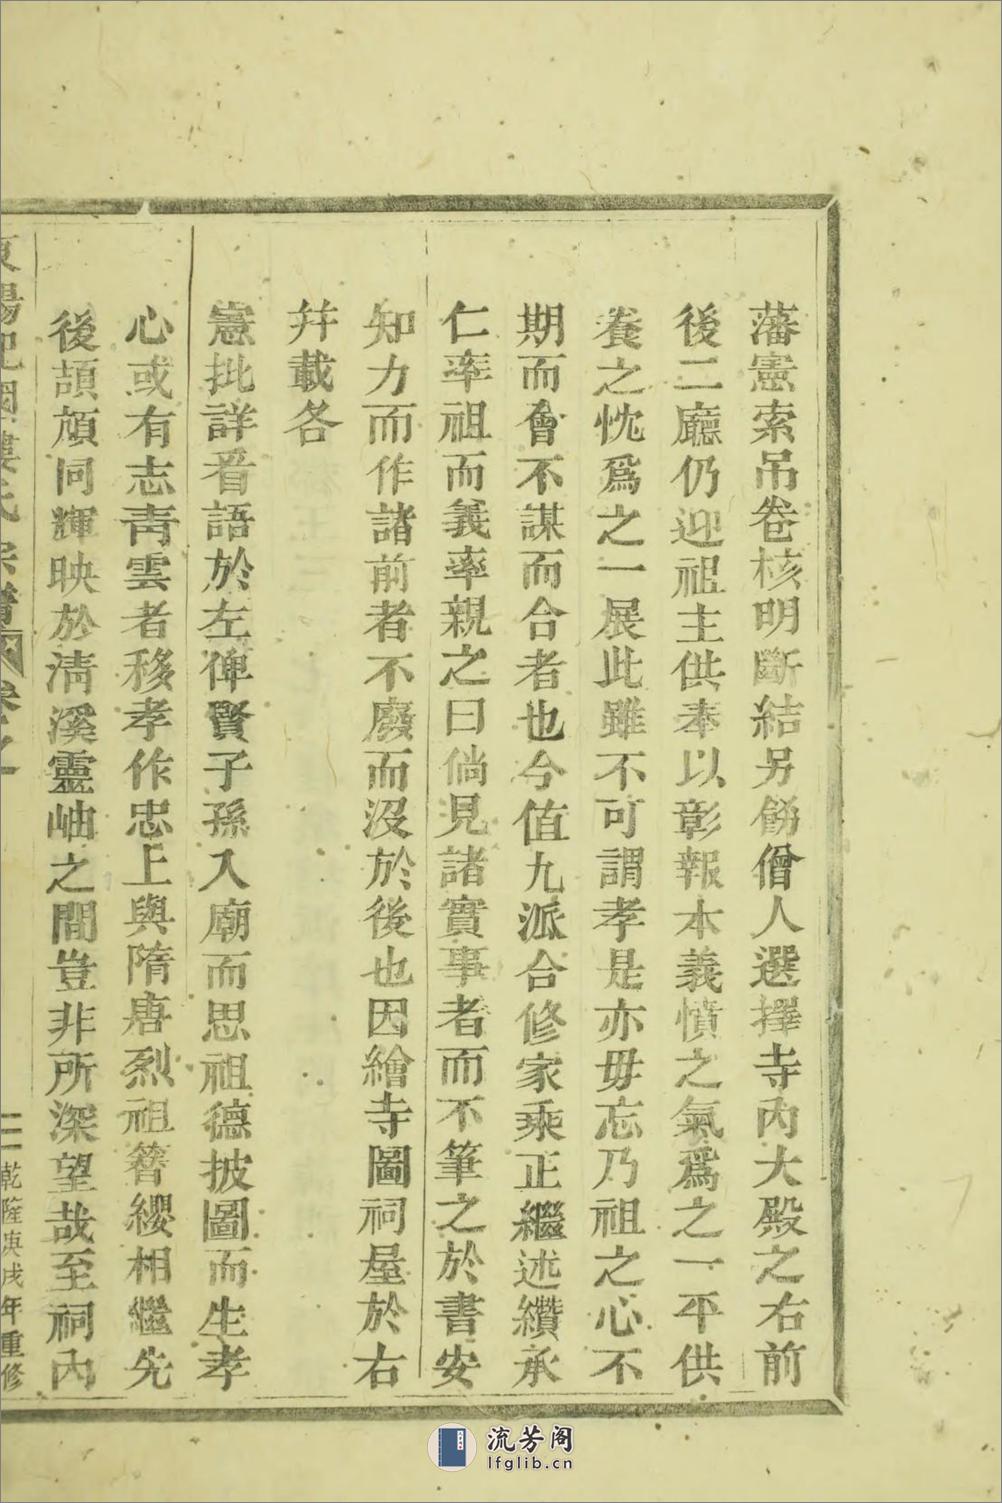 藩憲索吊卷核明斷結另飭僧人選擇寺內大殿之右前
後二廳仍迎祖主供奉以彰報本義憤之氣爲之一平供
養之忱爲之一展此雖不可謂孝是亦毋忘乃祖之心不
期而會不謀而合者也今值九派合修家乘正繼述纘承
仁率祖而義率親之日倘見諸實事者而不筆之於書安
知力而作諸前者不廢而沒於後也因繪寺圖祠屋於右
幷載各
憲批詳看語於左俾賢子孫入廟而思祖德披圖而生孝
心或有志靑雲者移孝作忠上與隋唐烈祖簪纓相繼先
後頡頏同輝映於淸溪靈岫之間豈非所深望哉至祠內
東陽杞國婁氏宗譜 卷之一 二 乾隆庚戌年重修
流芳阁
lfglib.cn